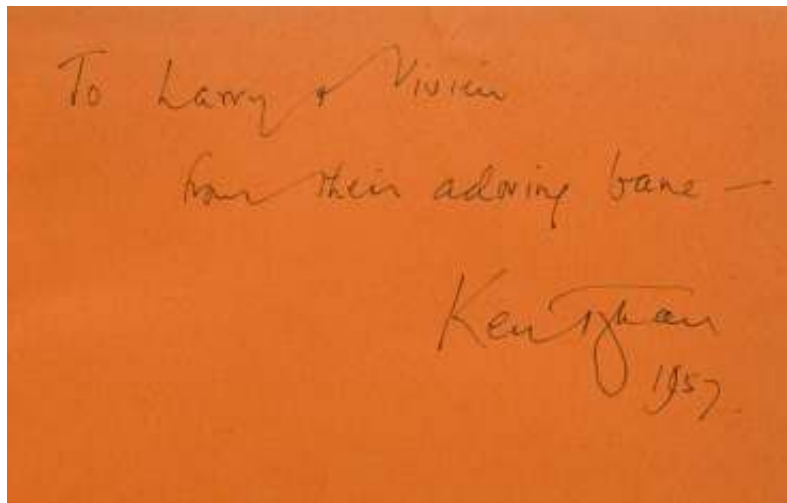 To Larry + Vivien
from their adoring bane —
Ken Tynan
1957.